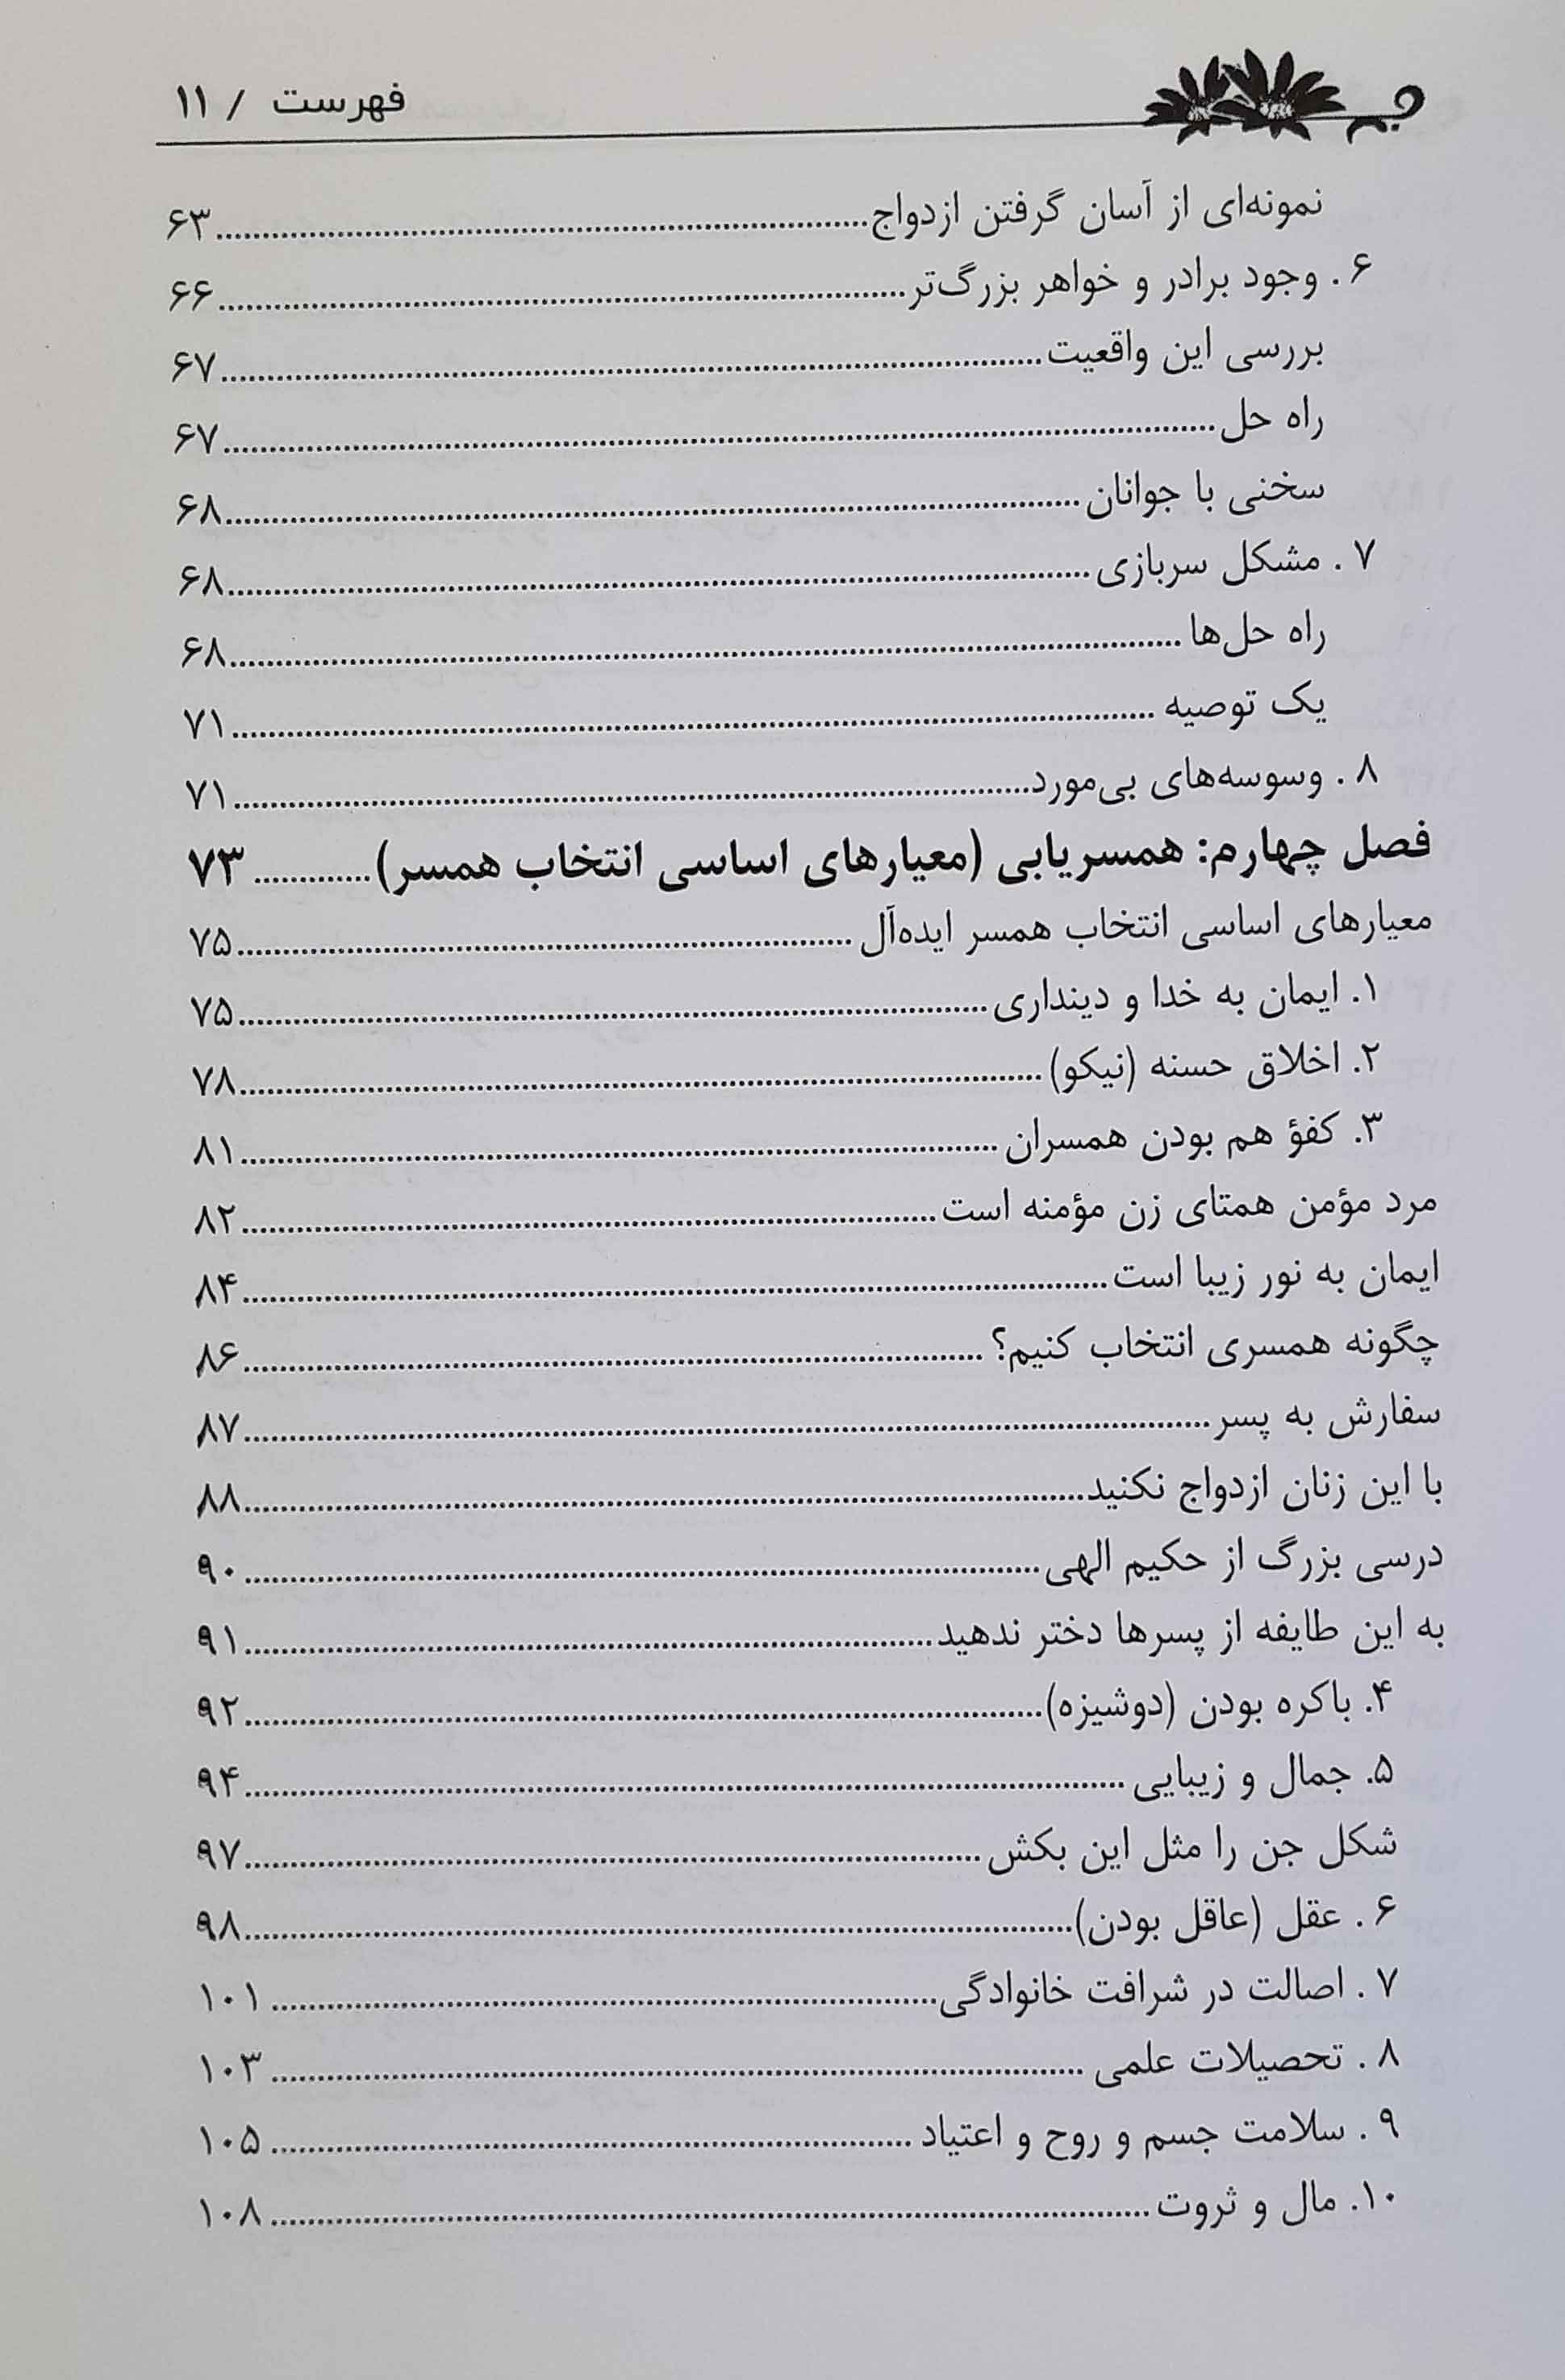 فهرست / ۱۱
نمونه‌ای از آسان گرفتن ازدواج ........ ۶۳
۶ . وجود برادر و خواهر بزرگ‌تر ........ ۶۶
بررسی این واقعیت ........ ۶۷
راه حل ........ ۶۷
سخنی با جوانان ........ ۶۸
۷ . مشکل سربازی ........ ۶۸
راه حل‌ها ........ ۶۸
یک توصیه ........ ۷۱
۸ . وسوسه‌های بی‌مورد ........ ۷۱
فصل چهارم: همسریابی (معیارهای اساسی انتخاب همسر) ........ ۷۳
معیارهای اساسی انتخاب همسر ایده‌آل ........ ۷۵
۱. ایمان به خدا و دینداری ........ ۷۵
۲. اخلاق حسنه (نیکو) ........ ۷۸
۳. کفؤ هم بودن همسران ........ ۸۱
مرد مؤمن همتای زن مؤمنه است ........ ۸۲
ایمان به نور زیبا است ........ ۸۴
چگونه همسری انتخاب کنیم؟ ........ ۸۶
سفارش به پسر ........ ۸۷
با این زنان ازدواج نکنید ........ ۸۸
درسی بزرگ از حکیم الهی ........ ۹۰
به این طایفه از پسرها دختر ندهید ........ ۹۱
۴. باکره بودن (دوشیزه) ........ ۹۲
۵. جمال و زیبایی ........ ۹۴
شکل جن را مثل این بکش ........ ۹۷
۶ . عقل (عاقل بودن) ........ ۹۸
۷ . اصالت در شرافت خانوادگی ........ ۱۰۱
۸ . تحصیلات علمی ........ ۱۰۳
۹ . سلامت جسم و روح و اعتیاد ........ ۱۰۵
۱۰. مال و ثروت ........ ۱۰۸